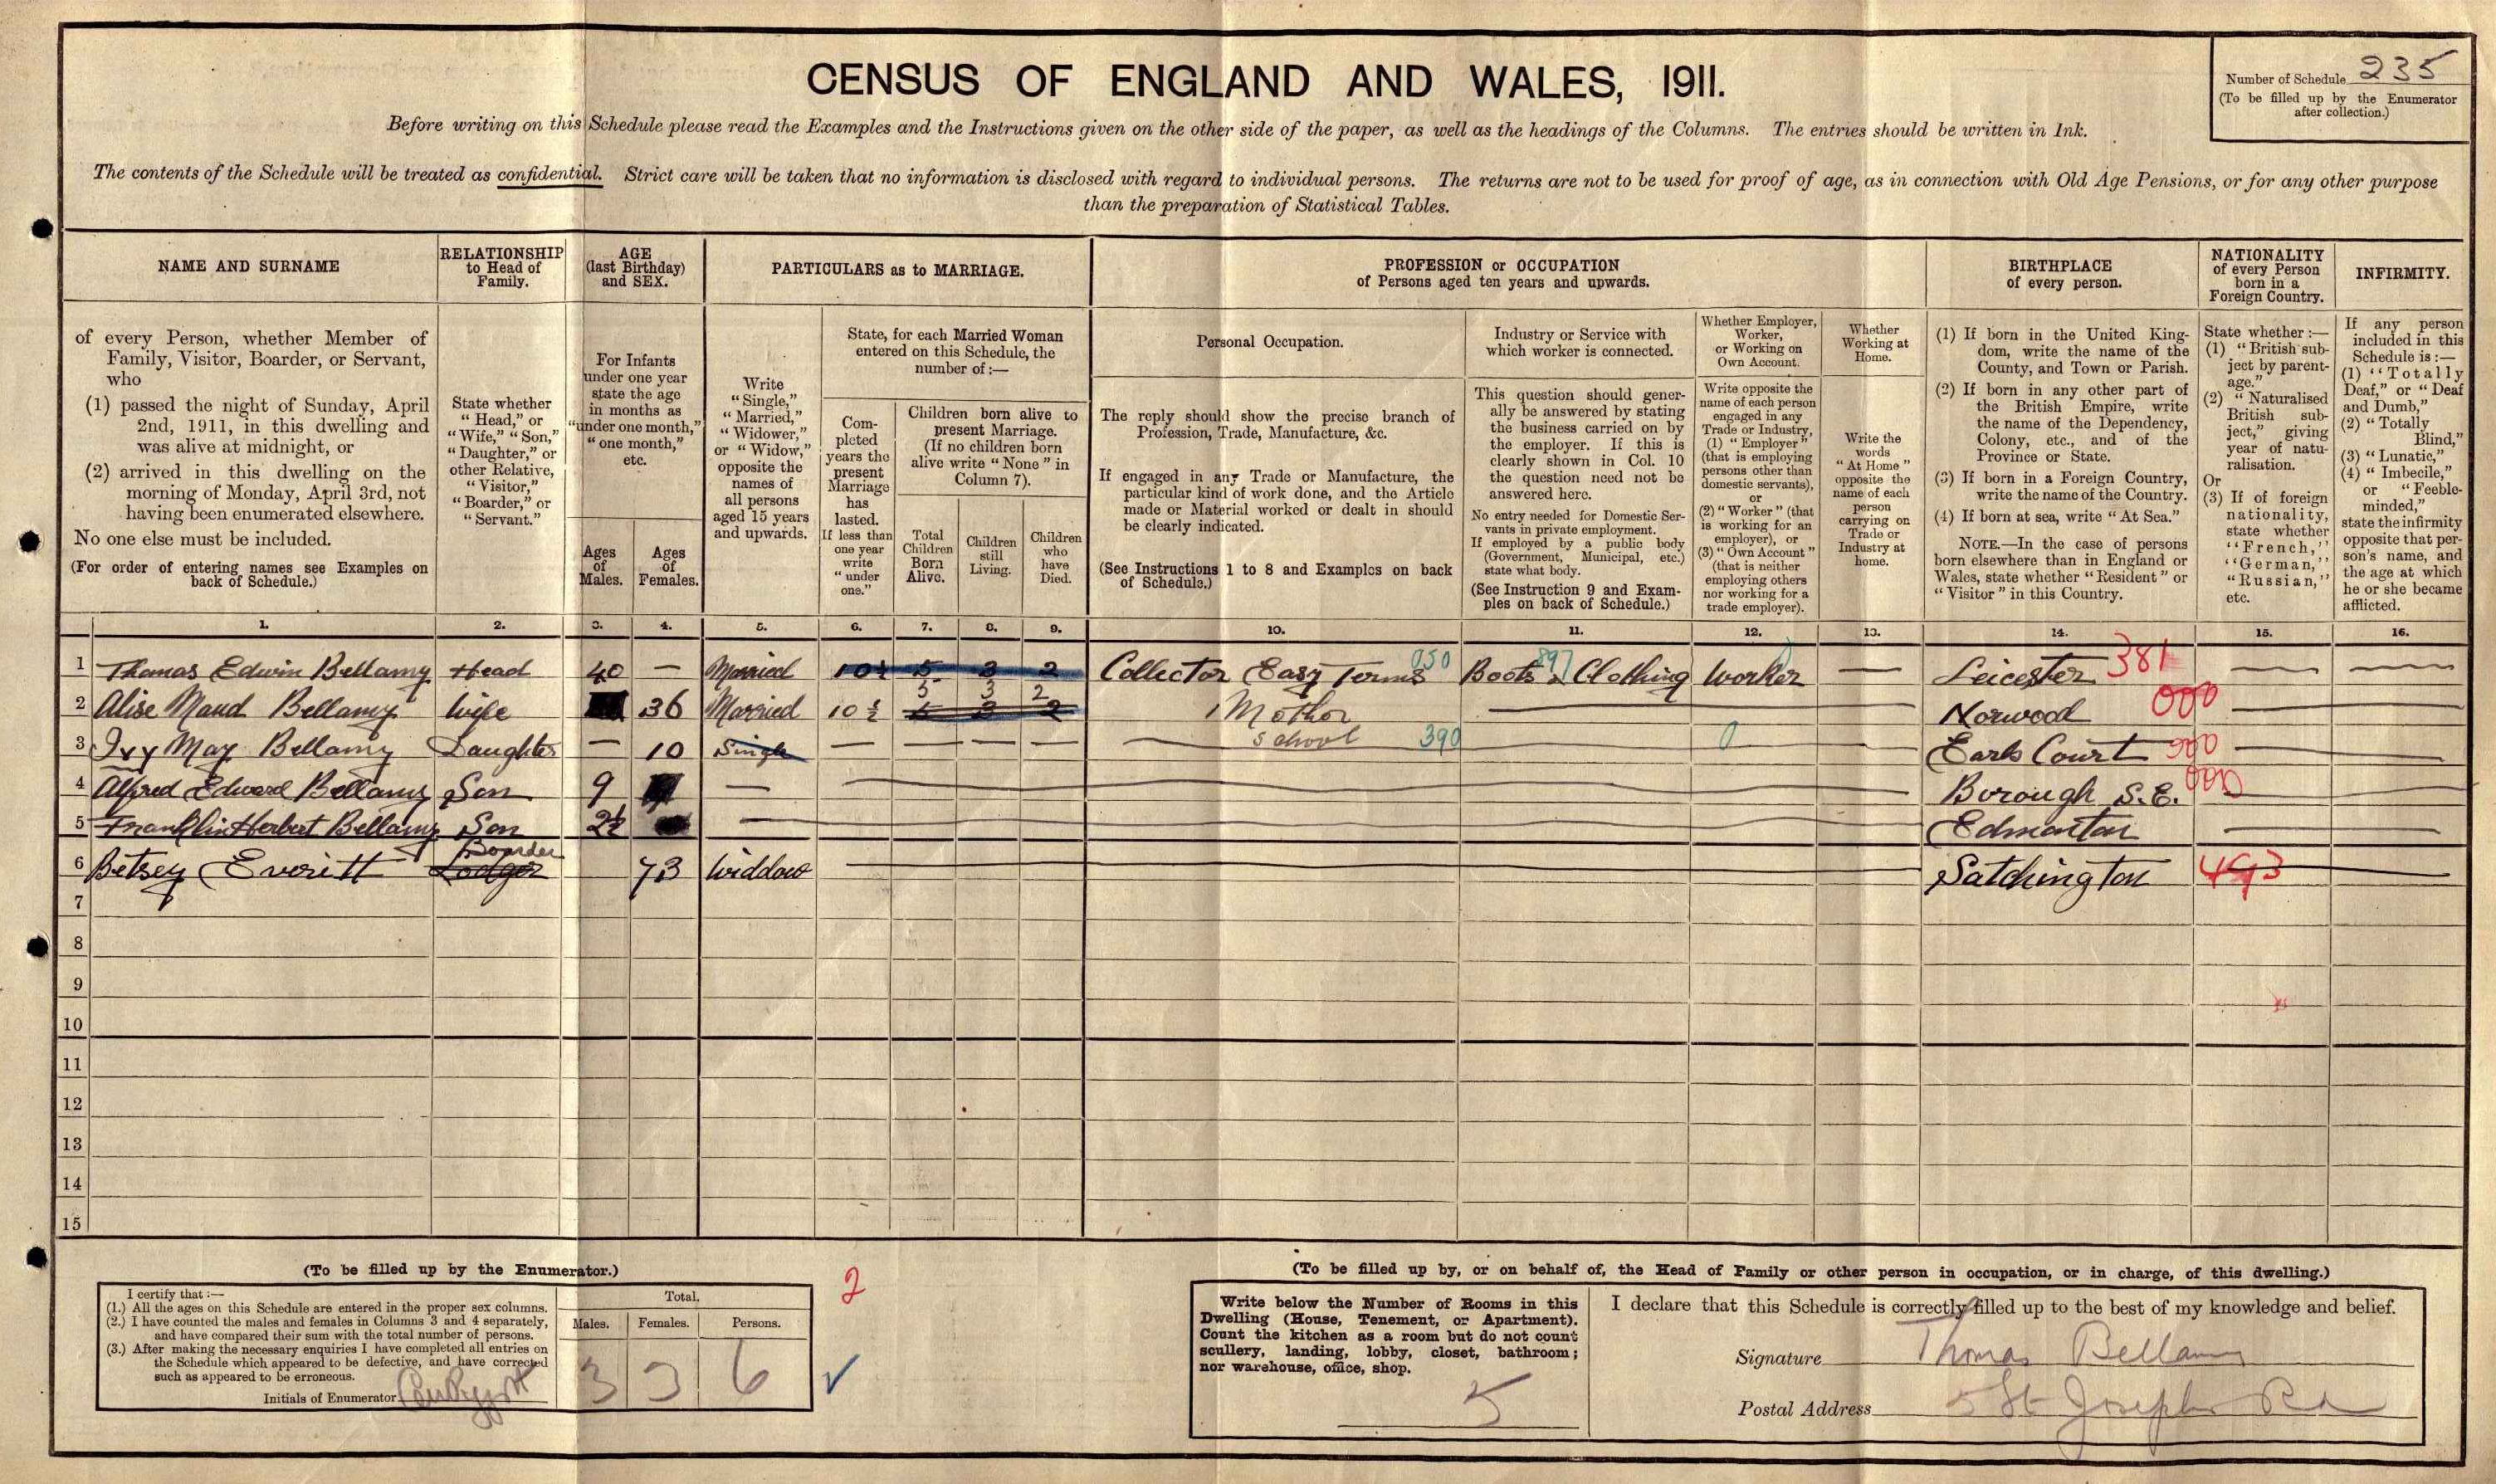 CENSUS OF ENGLAND AND WALES, 1911.
Number of Schedule 235
(To be filled up by the Enumerator
after collection.)
Before writing on this Schedule please read the Examples and the Instructions given on the other side of the paper, as well as the headings of the Columns. The entries should be written in Ink.
The contents of the Schedule will be treated as confidential. Strict care will be taken that no information is disclosed with regard to individual persons. The returns are not to be used for proof of age, as in connection with Old Age Pensions, or for any other purpose
than the preparation of Statistical Tables.
NAME AND SURNAME
of every Person, whether Member of
Family, Visitor, Boarder, or Servant,
who
(1) passed the night of Sunday, April
2nd, 1911, in this dwelling and
was alive at midnight, or
(2) arrived in this dwelling on the
morning of Monday, April 3rd, not
having been enumerated elsewhere.
No one else must be included.
(For order of entering names see Examples on
back of Schedule.)
RELATIONSHIP
to Head of
Family.
State whether
"Head," or
"Wife," "Son,"
"Daughter," or
other Relative,
"Visitor,"
"Boarder," or
"Servant."
AGE
(last Birthday)
and SEX.
For Infants
under one year
state the age
in months as
"under one month,"
"one month,"
etc.
Ages
of
Males.
Ages
of
Females.
PARTICULARS as to MARRIAGE.
Write
"Single,"
"Married,"
"Widower,"
or "Widow,"
opposite the
names of
all persons
aged 15 years
and upwards.
State, for each Married Woman
entered on this Schedule, the
number of :—
Com-
pleted
years the
present
Marriage
has
lasted.
If less than
one year
write
"under
one."
Children born alive to
present Marriage.
(If no children born
alive write "None" in
Column 7).
Total
Children
Born
Alive.
Children
still
Living.
Children
who
have
Died.
PROFESSION or OCCUPATION
of Persons aged ten years and upwards.
Personal Occupation.
The reply should show the precise branch of
Profession, Trade, Manufacture, &c.
If engaged in any Trade or Manufacture, the
particular kind of work done, and the Article
made or Material worked or dealt in should
be clearly indicated.
(See Instructions 1 to 8 and Examples on back
of Schedule.)
Industry or Service with
which worker is connected.
This question should gener-
ally be answered by stating
the business carried on by
the employer. If this is
clearly shown in Col. 10
the question need not be
answered here.
No entry needed for Domestic Ser-
vants in private employment.
If employed by a public body
(Government, Municipal, etc.)
state what body.
(See Instruction 9 and Exam-
ples on back of Schedule.)
Whether Employer,
Worker,
or Working on
Own Account.
Write opposite the
name of each person
engaged in any
Trade or Industry,
(1) "Employer"
(that is employing
persons other than
domestic servants),
or
(2) "Worker" (that
is working for an
employer), or
(3) "Own Account"
(that is neither
employing others
nor working for a
trade employer).
Whether
Working at
Home.
Write the
words
"At Home"
opposite the
name of each
person
carrying on
Trade or
Industry at
home.
BIRTHPLACE
of every person.
(1) If born in the United King-
dom, write the name of the
County, and Town or Parish.
(2) If born in any other part of
the British Empire, write
the name of the Dependency,
Colony, etc., and of the
Province or State.
(3) If born in a Foreign Country,
write the name of the Country.
(4) If born at sea, write "At Sea."
NOTE.—In the case of persons
born elsewhere than in England or
Wales, state whether "Resident" or
"Visitor" in this Country.
NATIONALITY
of every Person
born in a
Foreign Country.
State whether :—
(1) "British sub-
ject by parent-
age."
(2) "Naturalised
British sub-
ject," giving
year of natu-
ralisation.
Or
(3) If of foreign
nationality,
state whether
"French,"
"German,"
"Russian,"
etc.
INFIRMITY.
If any person
included in this
Schedule is :—
(1) "Totally
Deaf," or "Deaf
and Dumb,"
(2) "Totally
Blind,"
(3) "Lunatic,"
(4) "Imbecile,"
or "Feeble-
minded,"
state the infirmity
opposite that per-
son's name, and
the age at which
he or she became
afflicted.
1. 2. 3. 4. 5. 6. 7. 8. 9. 10. 11. 12. 13. 14. 15. 16.
1 Thomas Edwin Bellamy Head 40 — Married 10½ 5 3 2 Collector Easy Terms 050 Boots & Clothing 897 Worker — Leicester 381 — —
5 3 2
2 Alise Maud Bellamy Wife 36 Married 10½ 5 3 2 Mother — Norwood 000
3 Ivy May Bellamy Daughter — 10 Single — — — — School 390 0 Earls Court 000 —
4 Alfred Edward Bellamy Son 9 — Borough S.E. 000 —
5 Franklin Herbert Bellamy Son 2½ — Edmonton —
Boarder
6 Betsey Everitt Lodger 73 Widdow — Satchington 493 —
7
8
9
10
11
12
13
14
15
(To be filled up by the Enumerator.)
I certify that :—
(1.) All the ages on this Schedule are entered in the proper sex columns.
(2.) I have counted the males and females in Columns 3 and 4 separately,
and have compared their sum with the total number of persons.
(3.) After making the necessary enquiries I have completed all entries on
the Schedule which appeared to be defective, and have corrected
such as appeared to be erroneous.
Initials of Enumerator
Total.
Males. Females. Persons.
3 3 6
2
(To be filled up by, or on behalf of, the Head of Family or other person in occupation, or in charge, of this dwelling.)
Write below the Number of Rooms in this
Dwelling (House, Tenement, or Apartment).
Count the kitchen as a room but do not count
scullery, landing, lobby, closet, bathroom;
nor warehouse, office, shop.
5
I declare that this Schedule is correctly filled up to the best of my knowledge and belief.
Signature Thomas Bellamy
Postal Address 5 St Josephs Rd